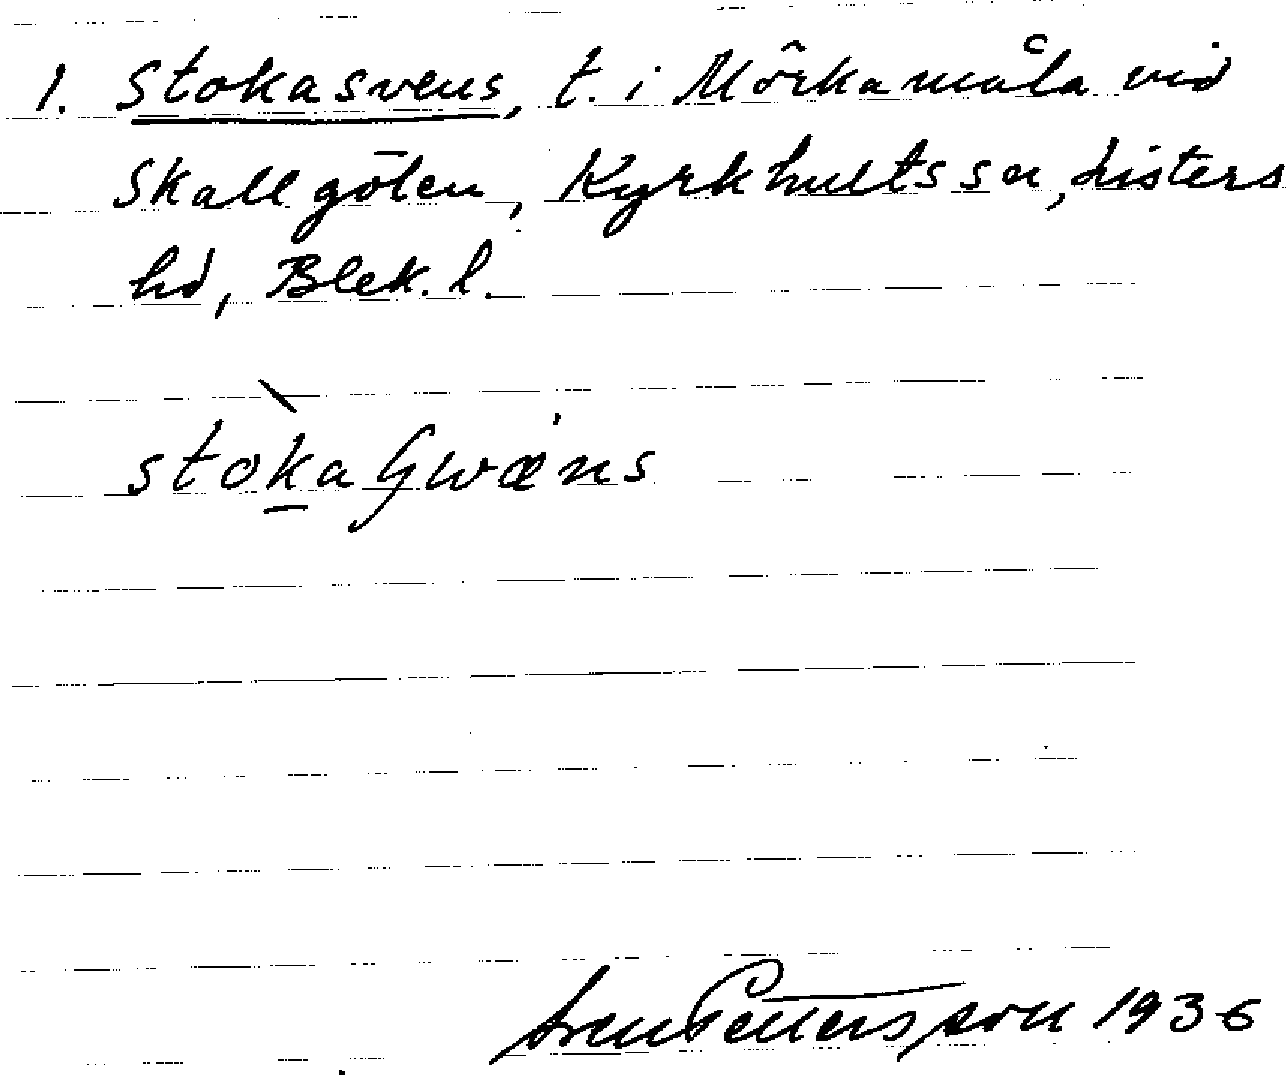 1. Stokasvens, t. i Mörkamåla vid
Skallgölen, Kyrkhults sn, Listers
hd, Blek. l.
Sven Pettersson 1936